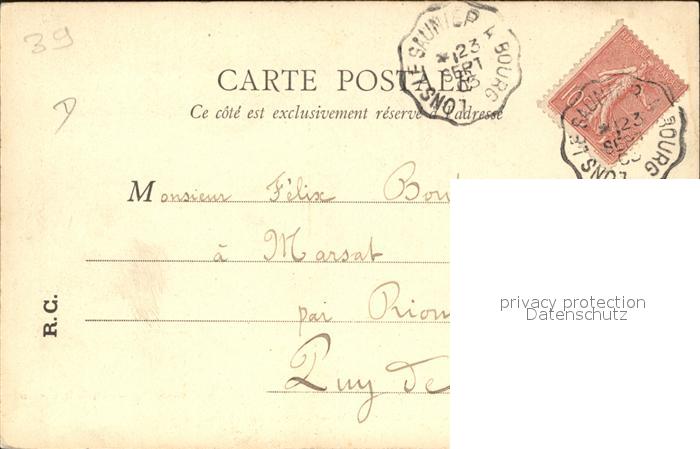 39
D
CARTE POSTALE
Ce côté est exclusivement réservé à l'adresse
LONS LE SAUNIER A BOURG
23
SEPT
03
Monsieur Félix
à Marsat
par Riom
Puy de
R. C.
privacy protection
Datenschutz